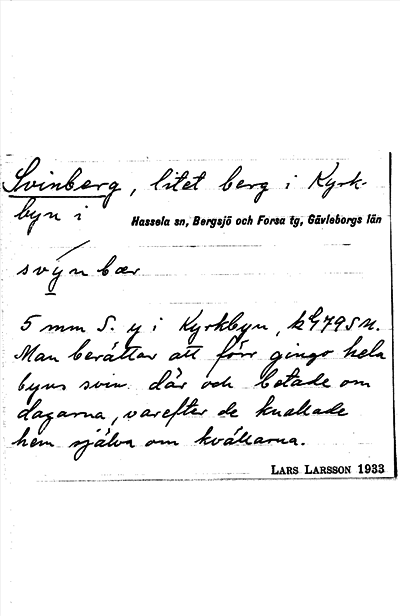 Svinberg, litet berg i Kyrk-
byn i Hassela sn, Bergsjö och Forsa tg, Gävleborgs län
svýn bær
5 mm S. y i Kyrkbyn,
Man berättar att förr gingo hela
byns svin där och betade om
dagarna, varefter de knallade
hem själva om kvällarna.
LARS LARSSON 1933